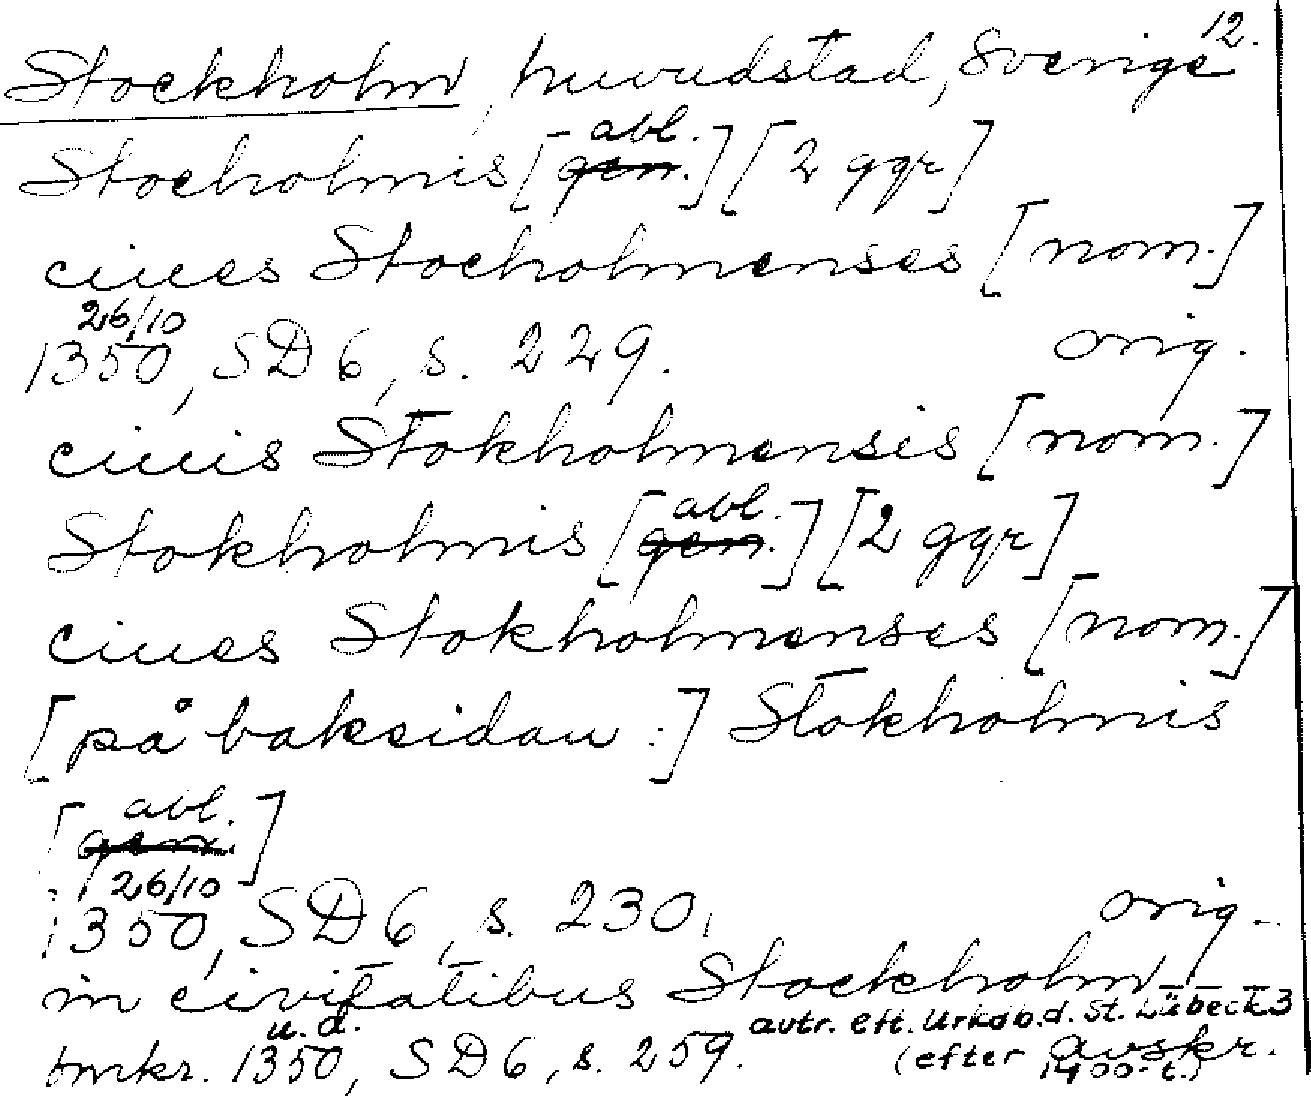 12.
Stockholm, huvudstad, Sverige
Stocholmis [abl. gen.] [2 ggr]
ciues Stocholmenses [nom.]
26/10
1350, SD 6, s. 229. orig.
ciuis Stokholmensis [nom.]
Stokholmis [abl. gen.] [2 ggr]
ciues Stokholmenses [nom.]
[på baksidan:] Stokholmis
[abl. gen.]
26/10
1350, SD 6, s. 230. orig.
in civitatibus Stockholm
u.d. avtr. eft. Urkdb. d. St. Lübeck 3
omkr. 1350, SD 6, s. 259. (efter avskr.
1400-t.)